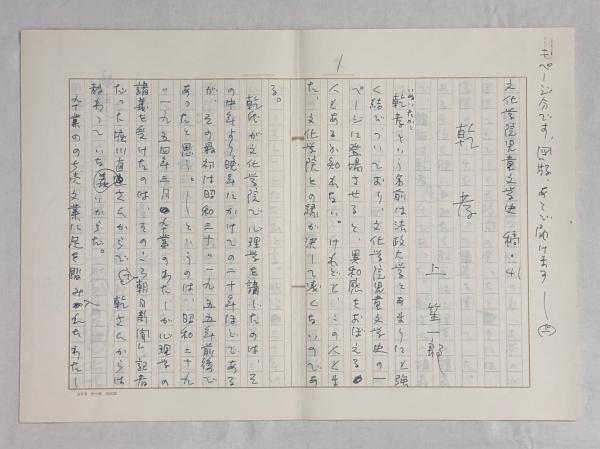 七ページ分です。図版、あとで届けます——㊤
文化学院児童文学史 稿・41
乾 孝
上 笙一郎
1
いぬいたかし
乾孝という名前は法政大学とあまりにも強
く結びついており、文化学院児童文学史の一
ページに登場させると、異和感をおぼえる
人もあるかも知れない。けれども、この人もま
た、文化学院との縁が決して浅くないのであ
る。
乾氏が文化学院で心理学を講じたのは、そ
の中年より晩年にかけての二十年ほどである
が、その最初は昭和三十=一九五五年前後で
あったと思う。——というのは、昭和二十九
=一九五四年三月卒業のわたしが心理学の
講義を受けたのは、そのころ朝日新聞の記者
だった堀川直義さんからで、乾さんからは
教わっていないからだ。
卒業ののち売文業に足を踏み入れたわたし